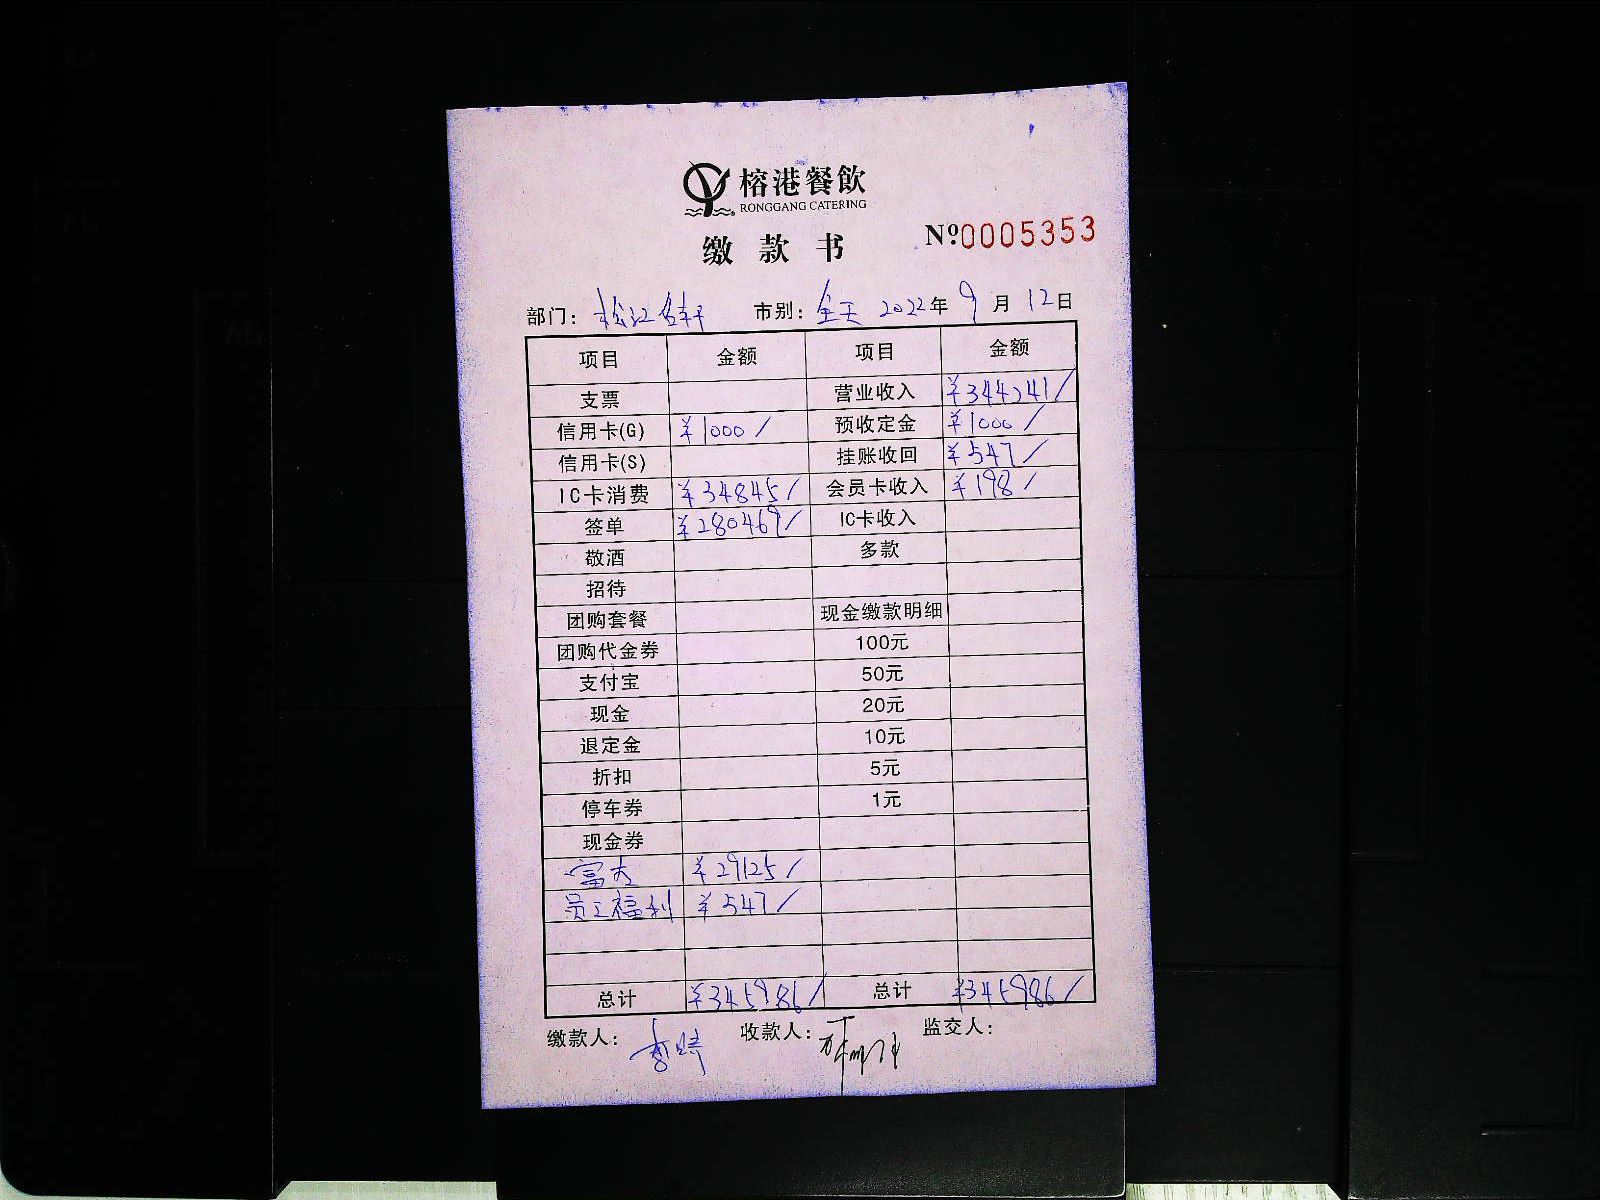 榕港餐飲
RONGGANG CATERING
缴款书
Nº:0005353
部门: 松江名轩 市别: 全天 2022年9月12日
项目 金额 项目 金额
支票 营业收入 ¥344241/
信用卡(G) ¥1000/ 预收定金 ¥1000/
信用卡(S) 挂账收回 ¥547/
IC卡消费 ¥34845/ 会员卡收入 ¥198/
签单 ¥280469/ IC卡收入
敬酒 多款
招待
团购套餐 现金缴款明细
团购代金券 100元
支付宝 50元
现金 20元
退定金 10元
折扣 5元
停车券 1元
现金券
富友 ¥29125/
员工福利 ¥547/
总计 ¥345986/ 总计 ¥345986/
缴款人: 收款人: 监交人: